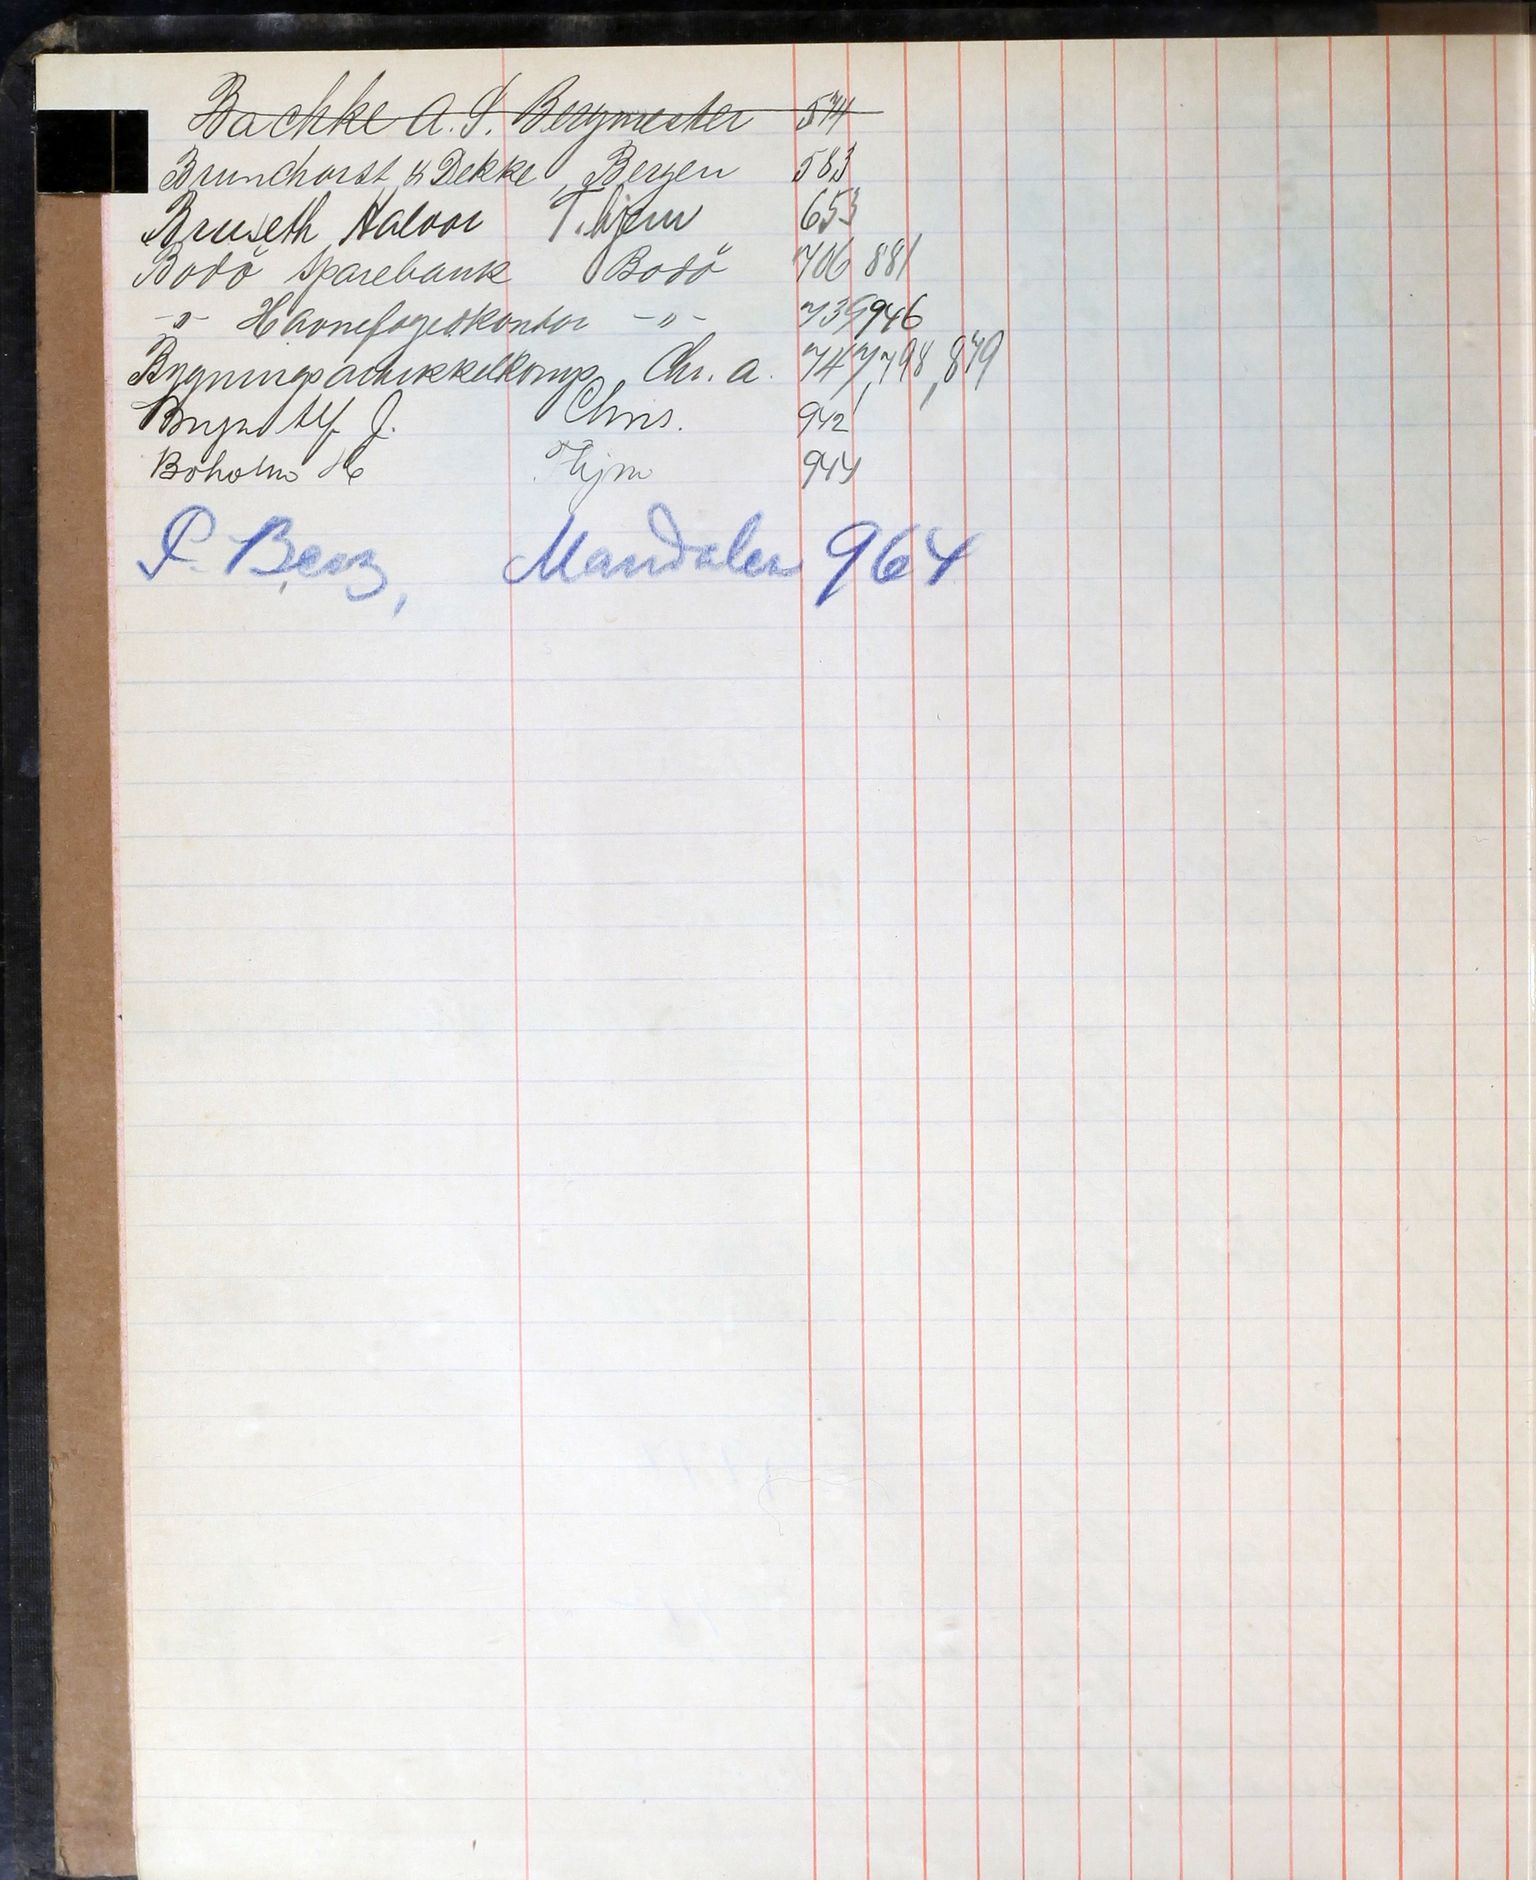 Bachke A. S. Bergmester 574
Brunchorst & Dekke, Bergen 583
Bruseth Halvor T.hjem 653
Bodö Sparebank Bodö 706 881
-"- Havnefogedkontor -"- 739 946
Bygningsartikkelkomp. Chr. a. 747, 798, 879
Bryn Alf J. Chris. 942
Boholm H T.hjm 944
P. Berg, Mandalen 964